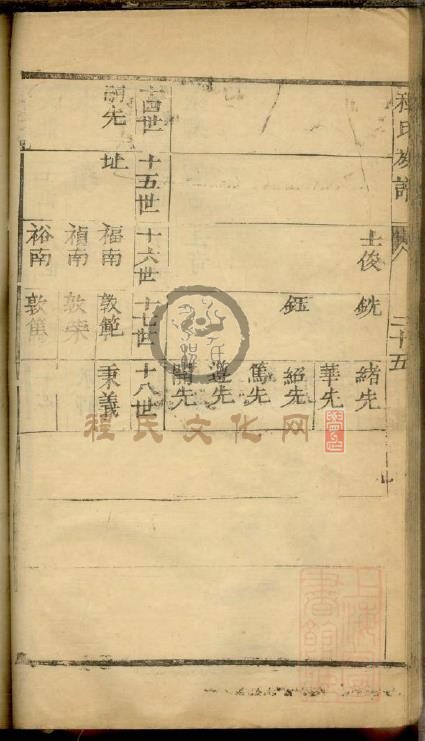 程氏族譜 二十五
士俊 銑 緒先
華先
鈺 紹先
篤先
遵先
開先
十四世 十五世 十六世 十七世 十八世
先 址 福南 敦範 秉義
禎南 敦榮
裕南 敦
程氏文化网